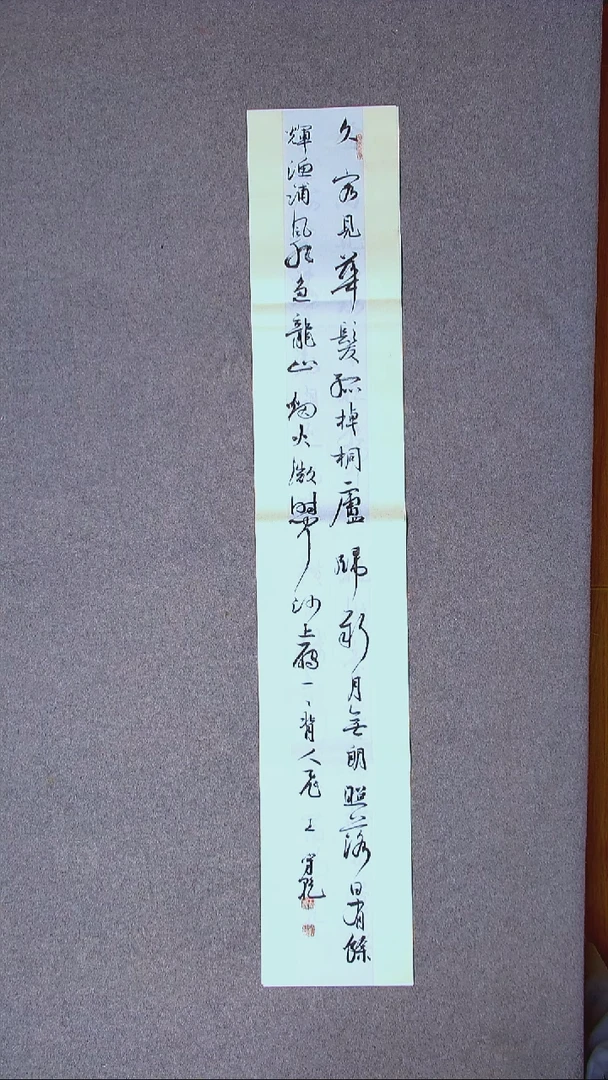 久客見華髮孤棹桐廬歸新月無朗照落日有餘
輝漁浦風水急龍山烟火微時聞沙上雁一一背人飛